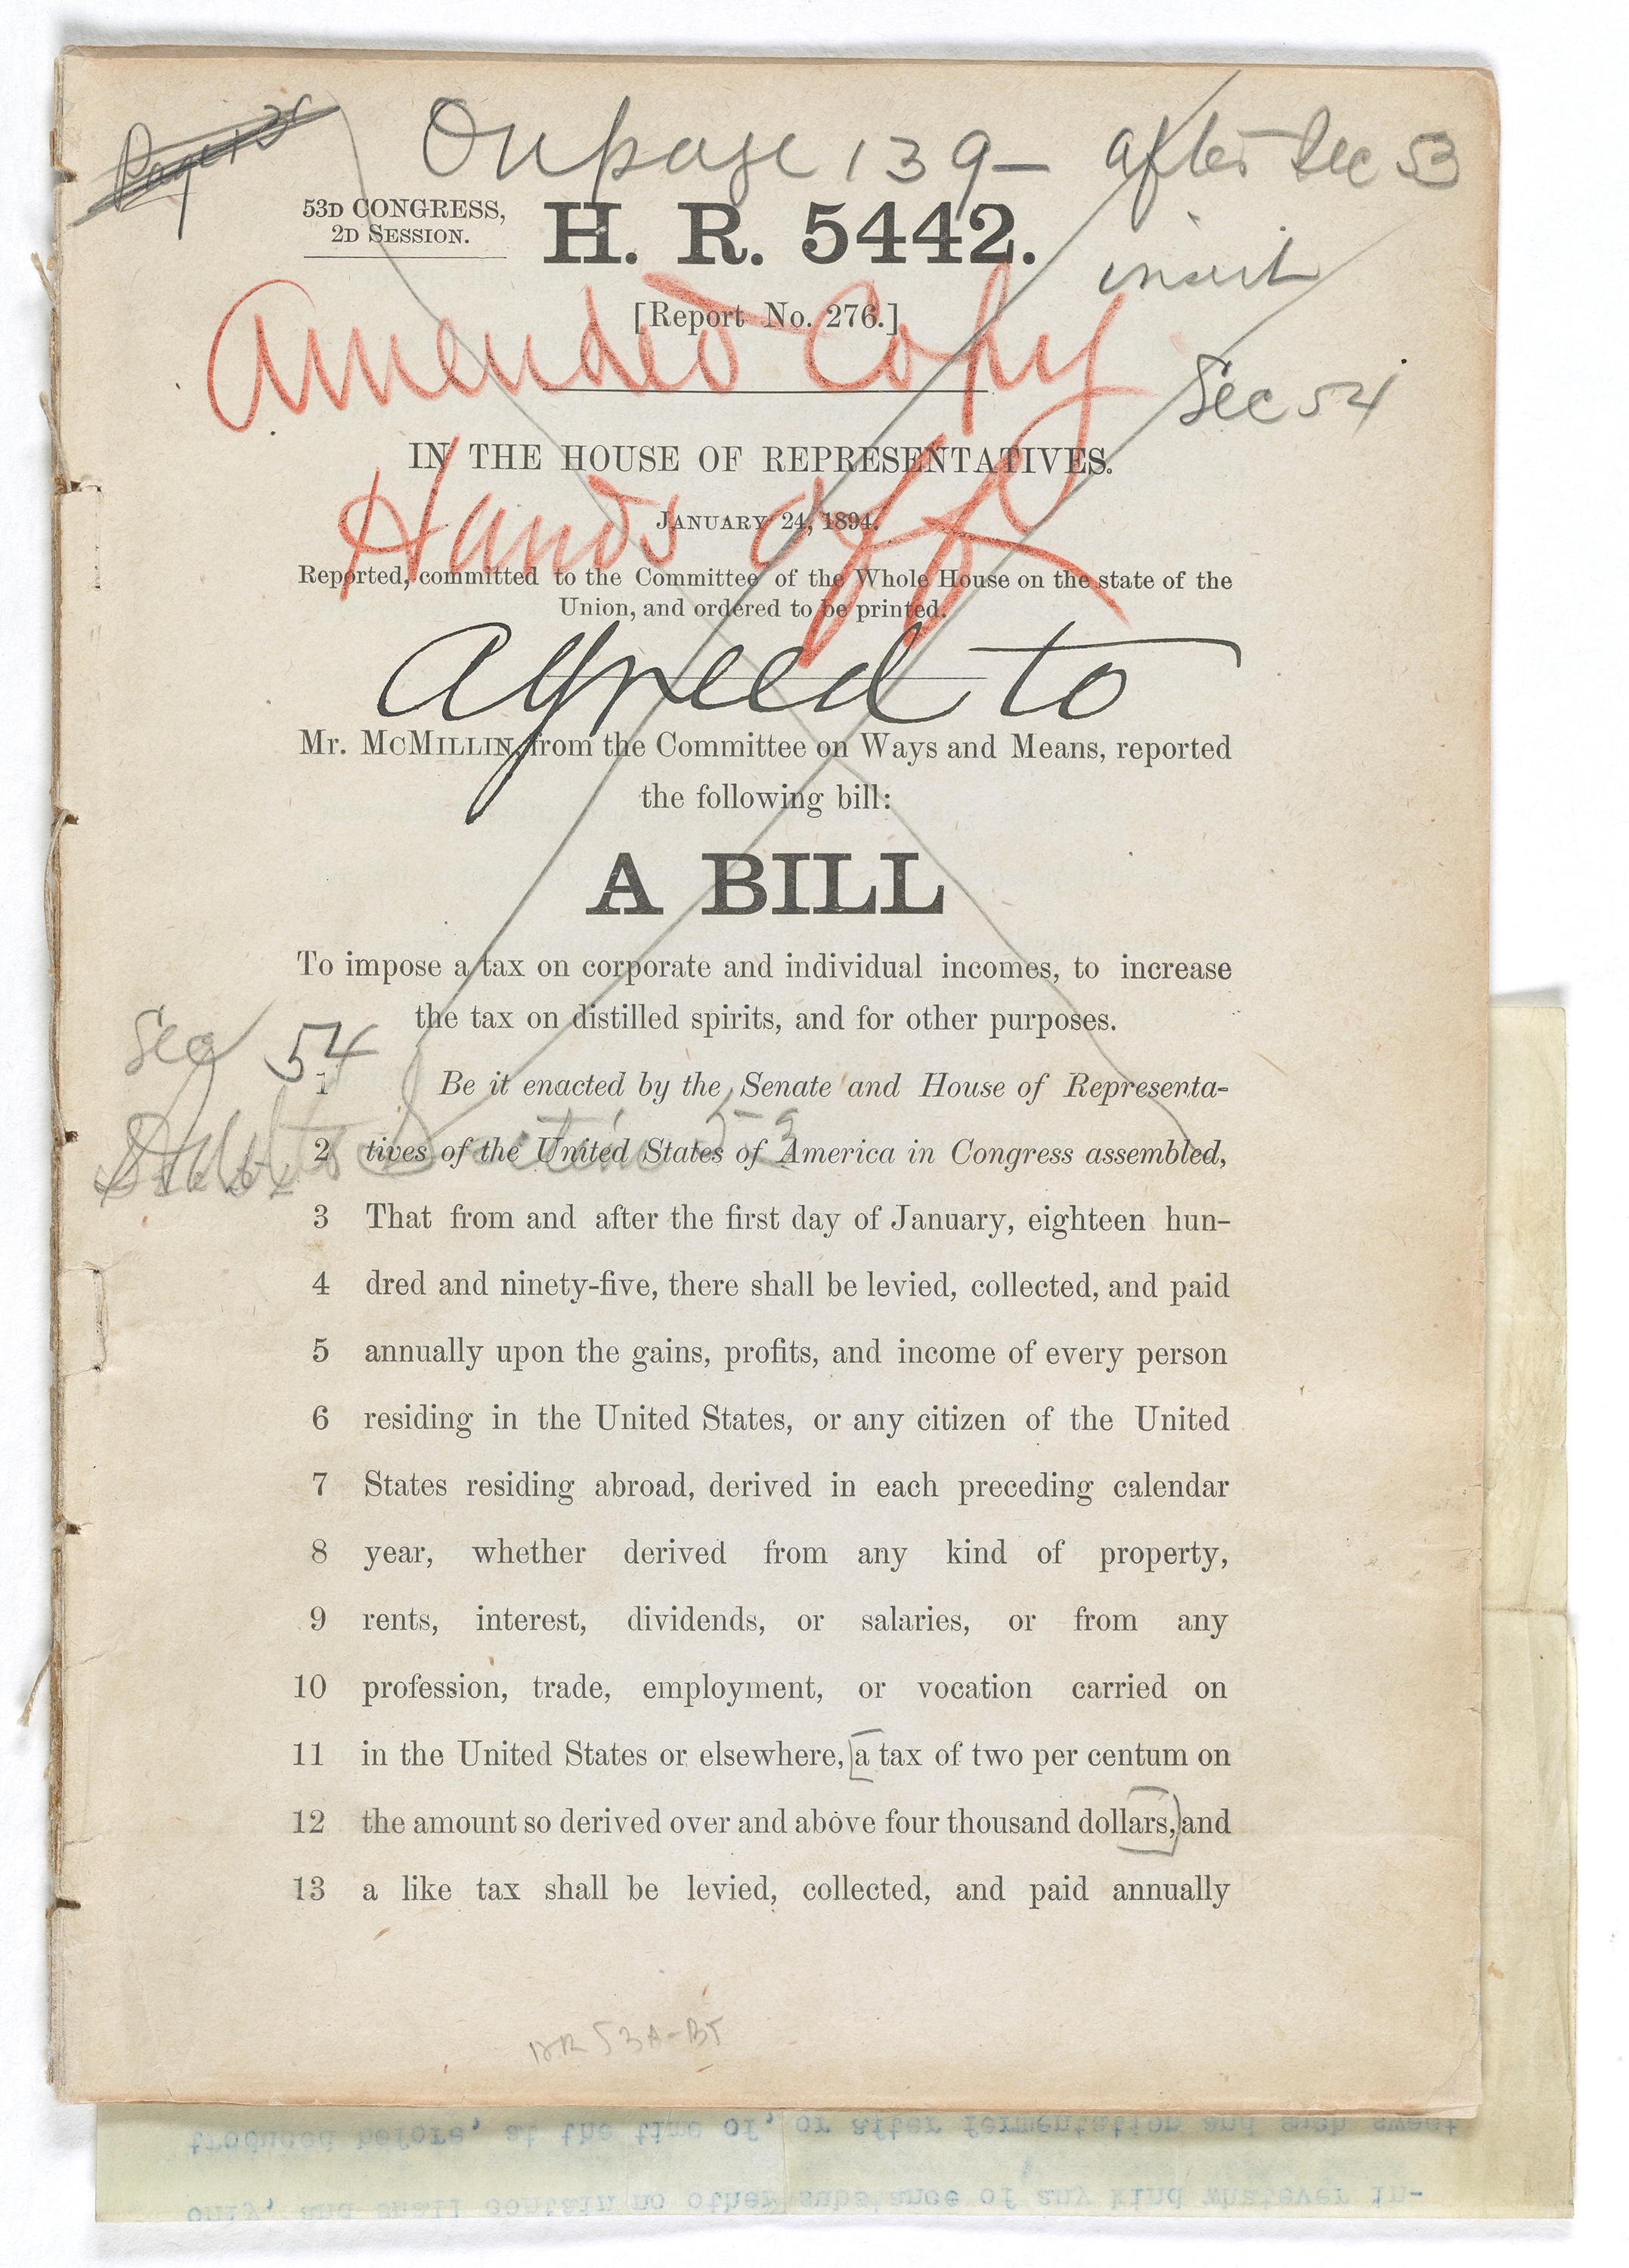 On page 139 – after Sec 53
53D CONGRESS,
2D SESSION.
H. R. 5442.
insert
[Report No. 276.]
Amended Copy
Sec 54
IN THE HOUSE OF REPRESENTATIVES.
Hands off
JANUARY 24, 1894.
Reported, committed to the Committee of the Whole House on the state of the
Union, and ordered to be printed.
Agreed to
Mr. MCMILLIN, from the Committee on Ways and Means, reported
the following bill:
A BILL
To impose a tax on corporate and individual incomes, to increase
the tax on distilled spirits, and for other purposes.
Sec 54
1 Be it enacted by the Senate and House of Representa-
2 tives of the United States of America in Congress assembled,
3 That from and after the first day of January, eighteen hun-
4 dred and ninety-five, there shall be levied, collected, and paid
5 annually upon the gains, profits, and income of every person
6 residing in the United States, or any citizen of the United
7 States residing abroad, derived in each preceding calendar
8 year, whether derived from any kind of property,
9 rents, interest, dividends, or salaries, or from any
10 profession, trade, employment, or vocation carried on
11 in the United States or elsewhere, [a tax of two per centum on
12 the amount so derived over and above four thousand dollars,] and
13 a like tax shall be levied, collected, and paid annually
HR 53A-B5
troduced before, at the time of, or after fermentation and such sweet
only, and shall contain no other substance of any kind whatever in-